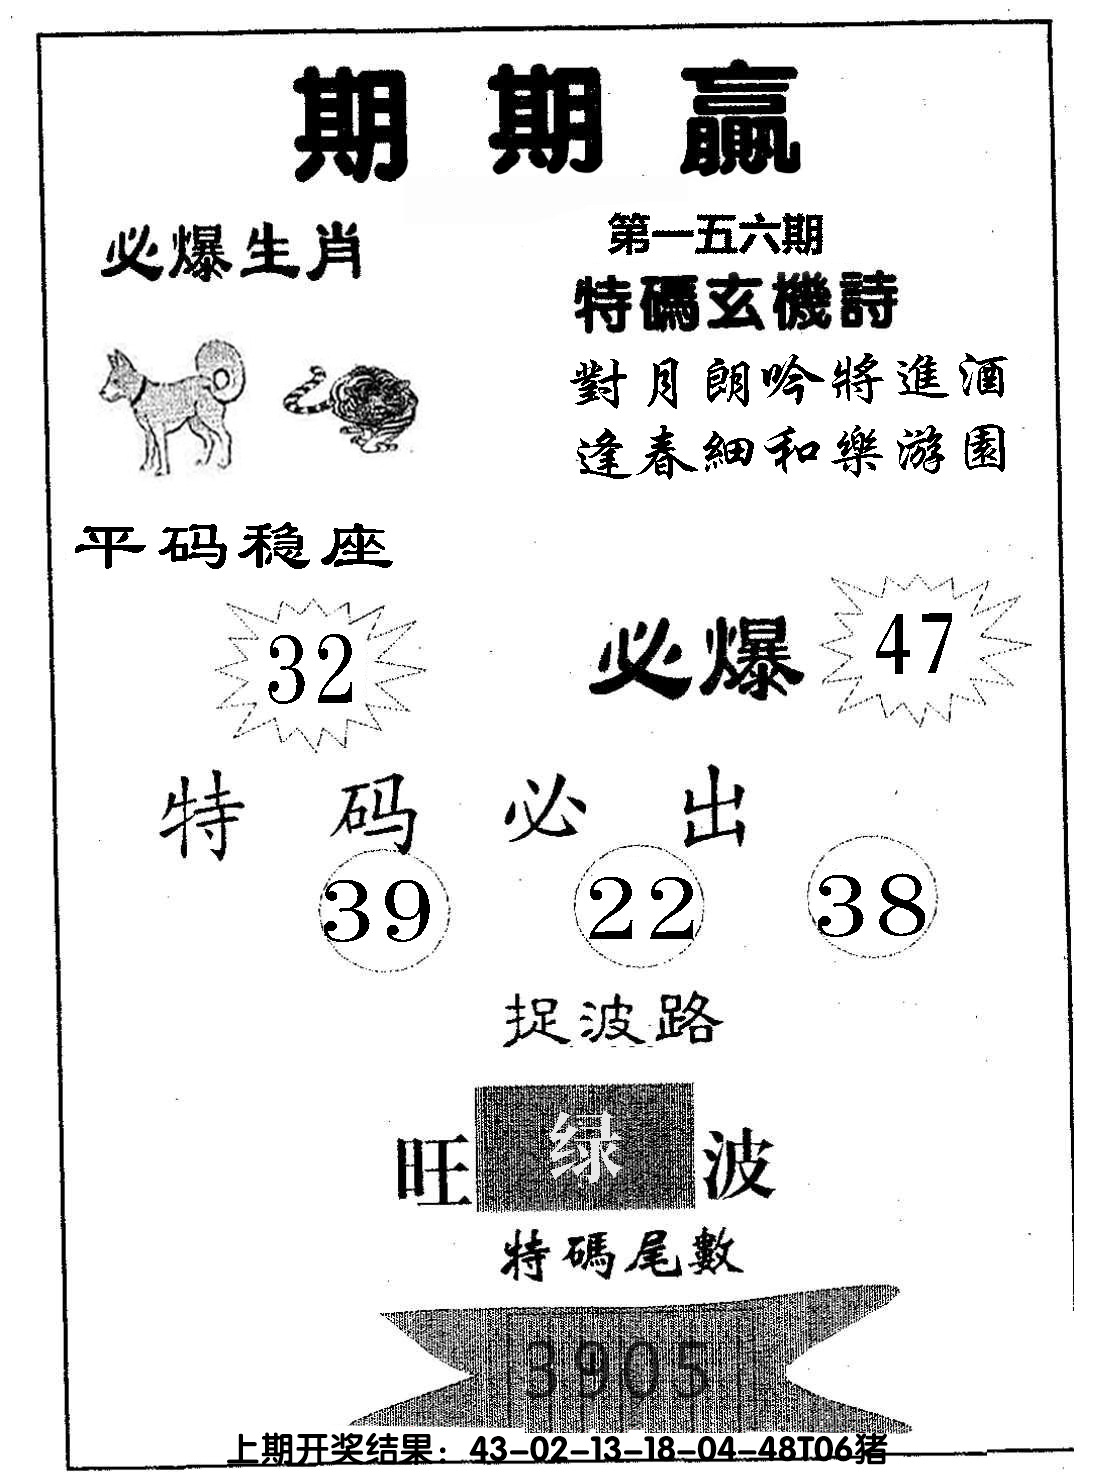 期期贏
必爆生肖
第一五六期
特碼玄機詩
對月朗吟將進酒
逢春細和樂游園
平码稳座
32
必爆
47
特码必出
39
22
38
捉波路
旺
绿
波
特碼尾數
3905
上期开奖结果：43-02-13-18-04-48T06猪